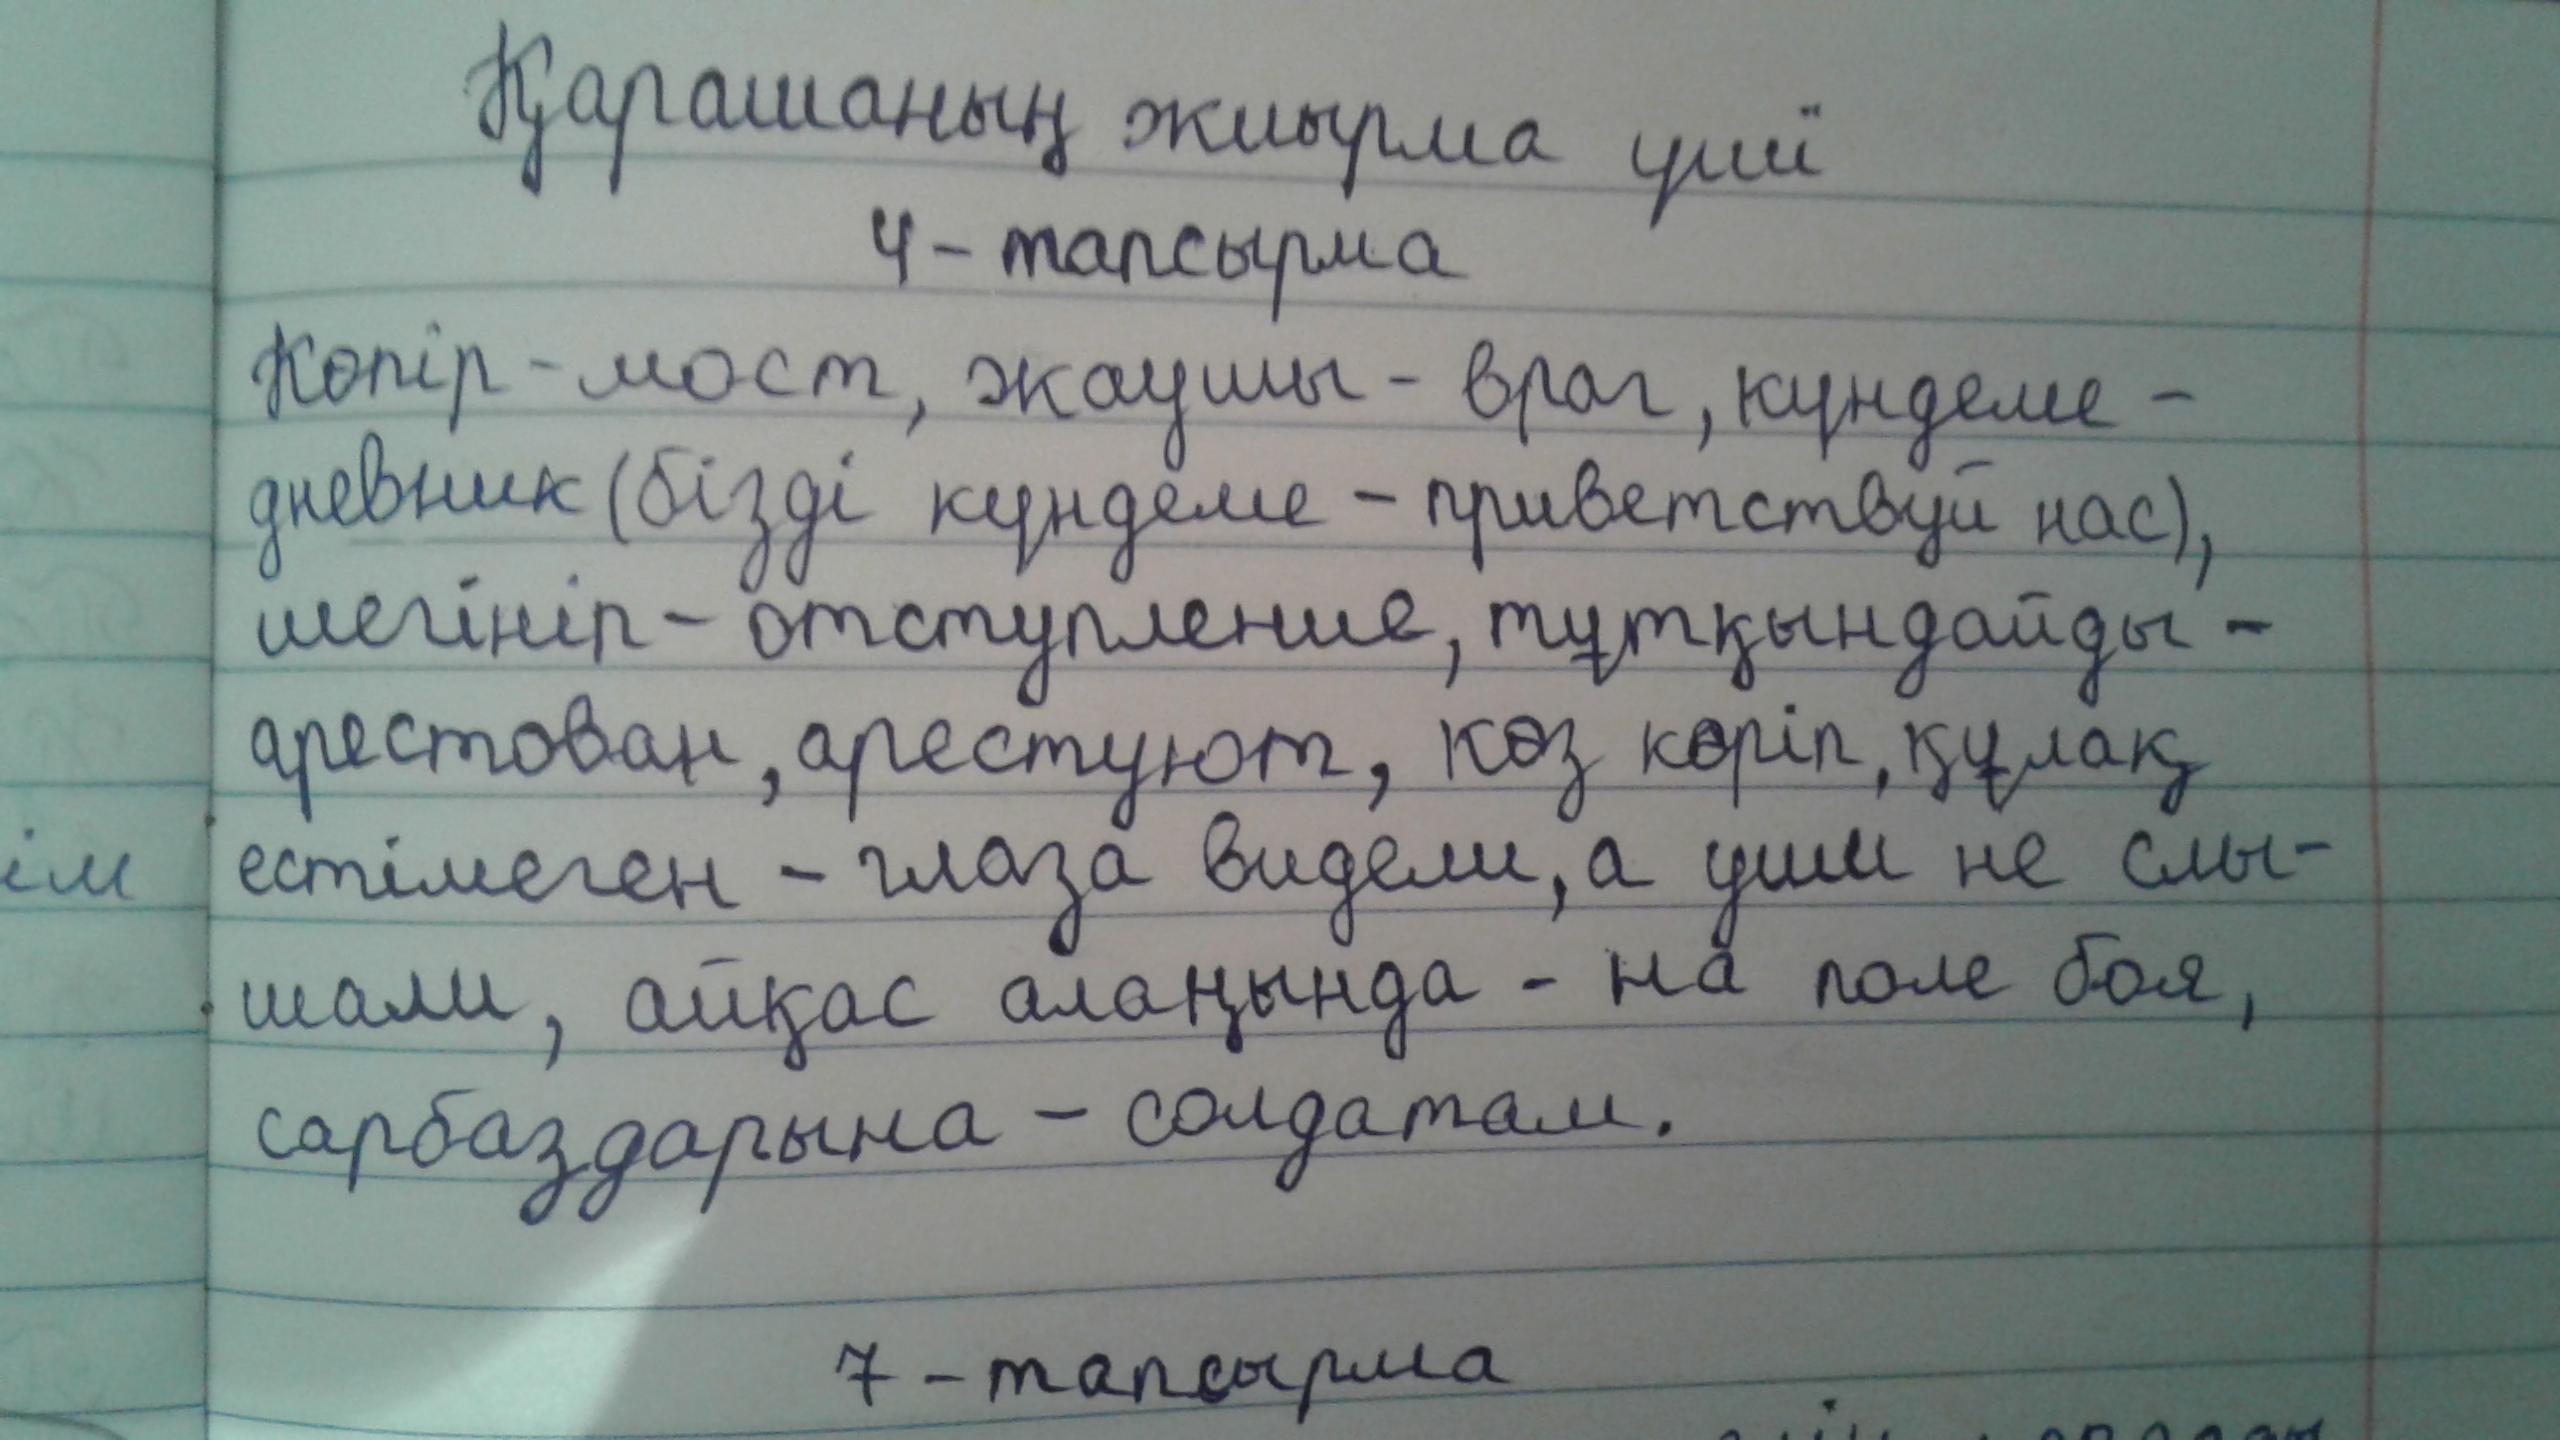 Қарашаның жиырма үші
4-тапсырма
Көпір - мост, жаушы - враг, күндеме -
дневник (бізді күндеме - приветствуй нас),
шегініп - отступление, тұтқындайды -
арестован, арестуют, көз көріп, құлақ
ім естімеген - глаза видели, а уши не слы-
шали, айқас алаңында - на поле боя,
сарбаздарына - солдатам.
7-тапсырма